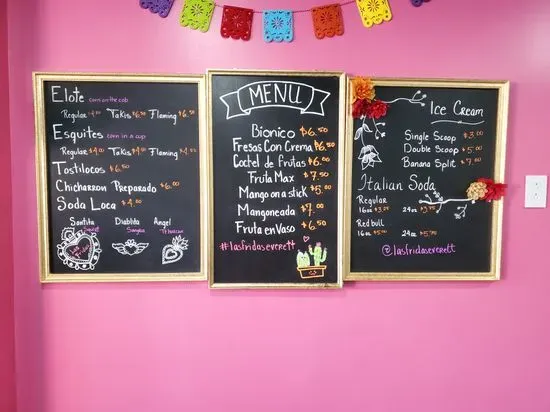 Elote corn on the cob
Regular Takis $6.50 Flaming $6.50
Esquites corn in a cup
Regular $4.00 Takis Flaming
Tostilocos $6.50
Chicharron Preparado $6.00
Soda Loca $4.00
Santita Diablita Angel
Sweet Sangria
Las Fridas
MENU
Bionico $6.50
Fresas Con Crema $6.00
Coctel de Frutas $6.00
Fruta Max $7.50
Mango on a stick $5.00
Mangoneada $7.00
Fruta en Vaso $5.00
#lasfridaseverett
Ice Cream
Single Scoop $3.00
Double Scoop $5.00
Banana Split $7.00
Italian Soda
Regular
16oz $3.25 24oz $3.75
Red bull
16oz $5.00 24oz
@lasfridaseverett